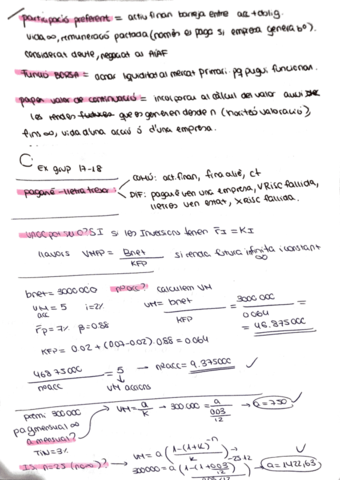 participació preferent = actiu finan barreja entre acc + oblig.
vida ∞, remuneració pactada (només es paga si empresa genera bº).
considerat deute, negociat al AIAF
Funció BORSA = donar liquiditat al mercat primari pq pugui funcionar.
paper valor de continuació = incorporar al càlcul del valor
les rendes que es generen desde n (horitzó valoració),
fins ∞, vida d'una acció o d'una empresa.
C. Ex grup 17-18
pagaré - lletra tresor
COMÚ: act. finan, fina alié, ct
DIF: pagaré ven una empresa, √ Risc fallida,
lletres ven estat, X RISC fallida.
VACC per sota? SI si les inversions tenen r̄I = KI
llavors VMFP = Bnet / KFP si renda futura infinita i constant
∞
bnet = 3000000 nºacc? calculem VM
VM acc = 5 i = 2% VM = bnet / KFP = 3000000 / 0.064 =
r̄p = 7% β = 0.88 = 46.875000
KFP = 0.02 + (0.07-0.02) · 0.88 = 0.064
46875000 / nºacc = 5 → nºacc = 9.375000 ✓
VM accions
prèstec 300000
pag mensual ∞
a mensual?
TIN = 3%
VM = a / K → 300000 = a / (0.03 / 12) → a = 750 ✓
Si n = 25 (nova)?
VM = a (1-(1+K)^-n / K) →
300000 = a (1-(1+0.03/12)^-25·12 / 0.03/12) → a = 1422,63 ✓